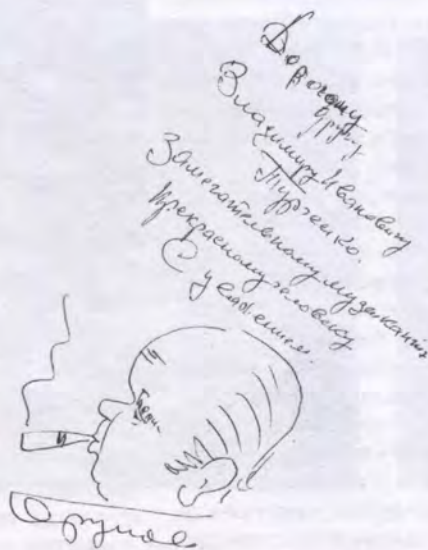 Дорогому
другу
Владимиру Ивановичу
Замечательному музыканту
Прекрасному человеку
С уважением.